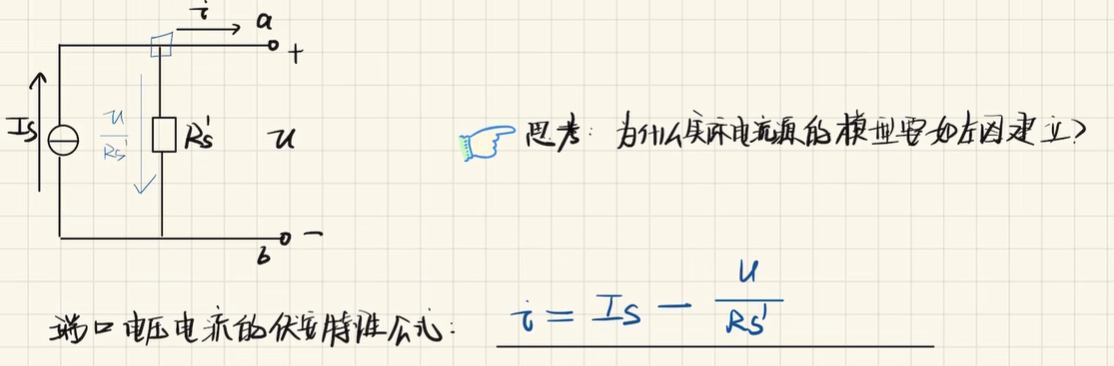 i a
+
Is
u/Rs' Rs' u
思考: 为什么实际电流源的模型要如左图建立?
b -
端口电压电流的伏安特性公式: i = Is - u/Rs'